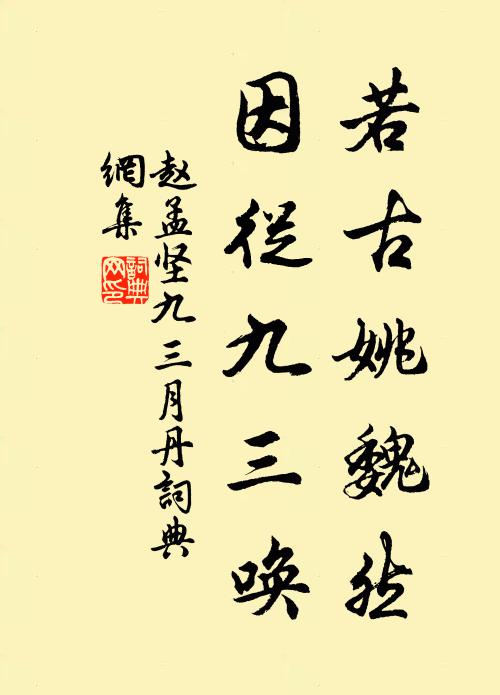 若古姚魏然
因從九三唤
赵孟坚九三月丹詞典
網集
詞典網印